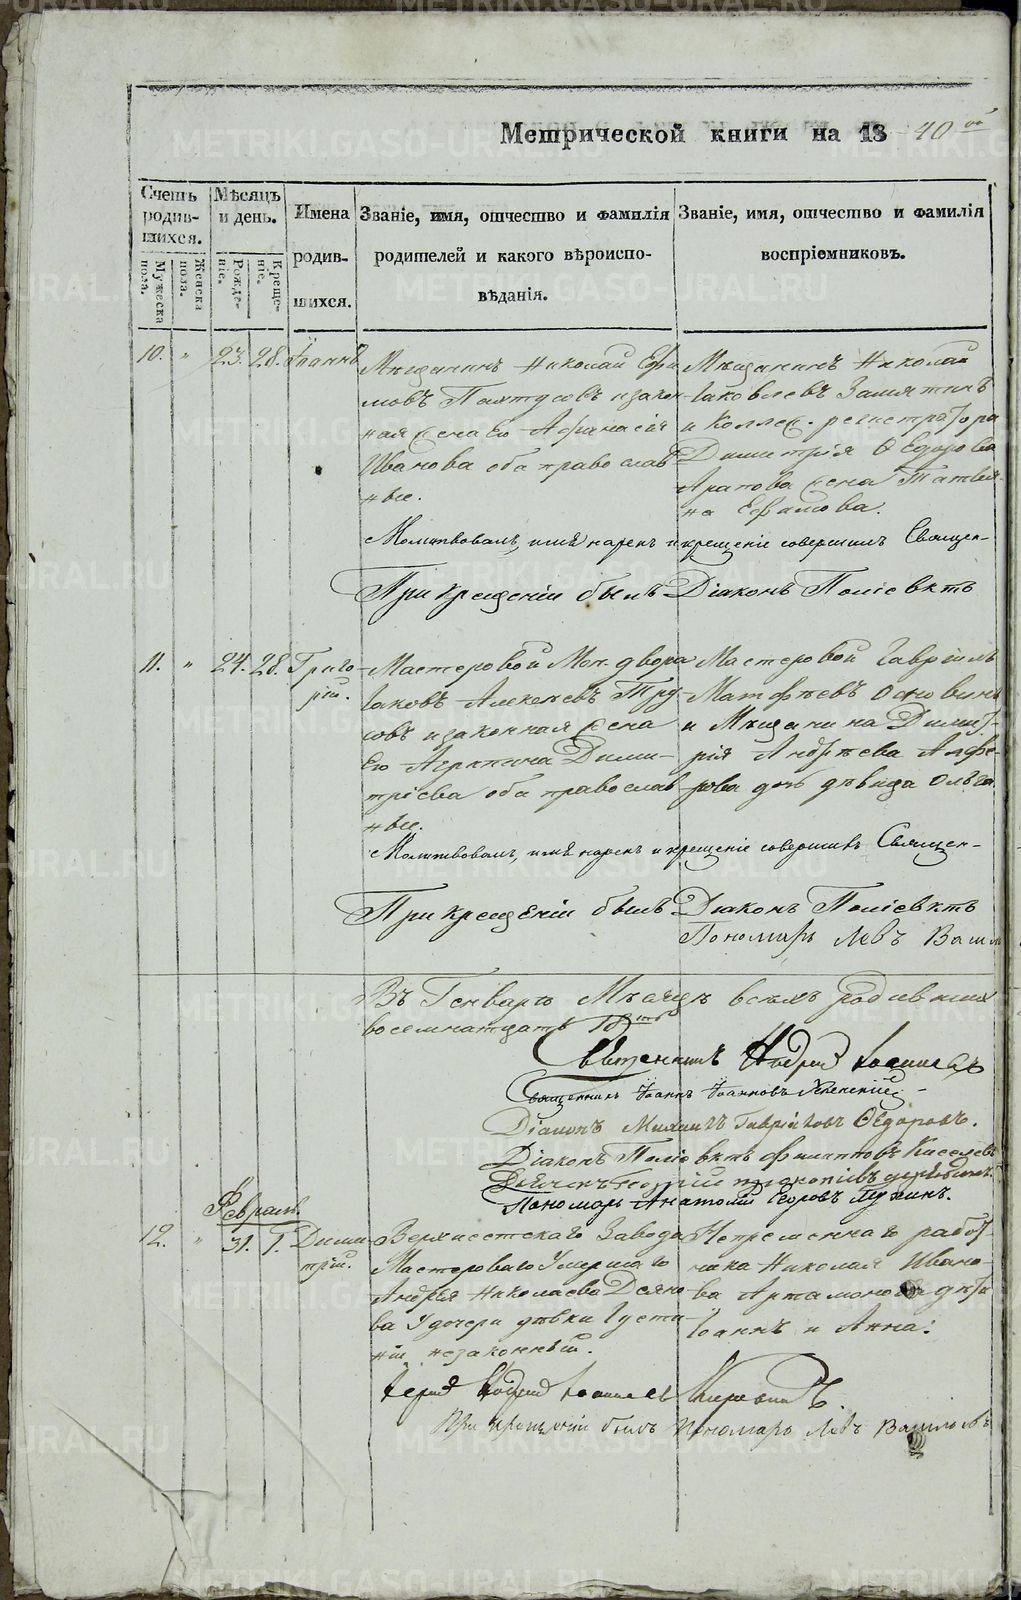 Метрической книги на 1840ой
Счетъ родив-шихся.
Мужеска пола.
Женска пола.
Мѣсяцъ и день.
Рожде-ніе.
Креще-ніе.
Имена родив-шихся.
Званіе, имя, отчество и фамилія
родителей и какого вѣроиспо-
вѣданія.
Званіе, имя, отчество и фамилія
воспріемниковъ.
10. " 23. 28. Іоаннъ
Мѣщанинъ Николай Ефи
мовъ Пахтусовъ и закон-
ная жена его Афанасія
Иванова оба православ
ные.
Мѣщанинъ Николай
Іаковлевъ Замятинъ
и Коллеж. регистратора
Димитрія Ѳедорова
Арапова жена Татья-
на Ефимова.
Молитвовалъ, имя нарекъ и крещеніе совершилъ Священ-
При крещеніи былъ Діаконъ Поліевктъ
11. " 24. 28. Григо
рій.
Мастеровой Мон. двора
Іаковъ Алексѣевъ Тру
совъ и законная жена
его Агрипина Дими-
тріева оба православ
ные.
Мастеровой Гавріилъ
Матфѣевъ Основинъ
и Мѣщанина Димит-
рія Андрѣева Алфе-
рова дочь дѣвица Ольга.
Молитвовалъ, имя нарекъ и крещеніе совершилъ Священ-
При крещеніи былъ Діаконъ Поліевктъ
Пономарь Левъ Васил
Въ Генварѣ Мѣсяцѣ всѣхъ родившихся
восемнатцать 18ть
Священникъ Андрей Іоанновъ
Священникъ Іоаннъ Іоанновъ
Діаконъ Михаилъ Гавріиловъ Ѳедоровъ.
Діаконъ Поліевктъ Филипповъ Киселевъ
Пономарь Анатолій Егоровъ Пужинъ.
Февраль.
12. " 31. 1. Дими
трій.
Верхисетскаго Завода
Мастероваго Умершаго
Андрея Николаева Деяно
ва у дочери дѣвки Іусти-
ніи незаконный.
Непременнаго работ-
ника Николая Ивано-
ва Артамонова дѣти
Іоаннъ и Анна.
Іерей Андрей Іоанновъ
При крещеніи былъ Пономарь Левъ Васильевъ
METRIKI.GASO-URAL.RU